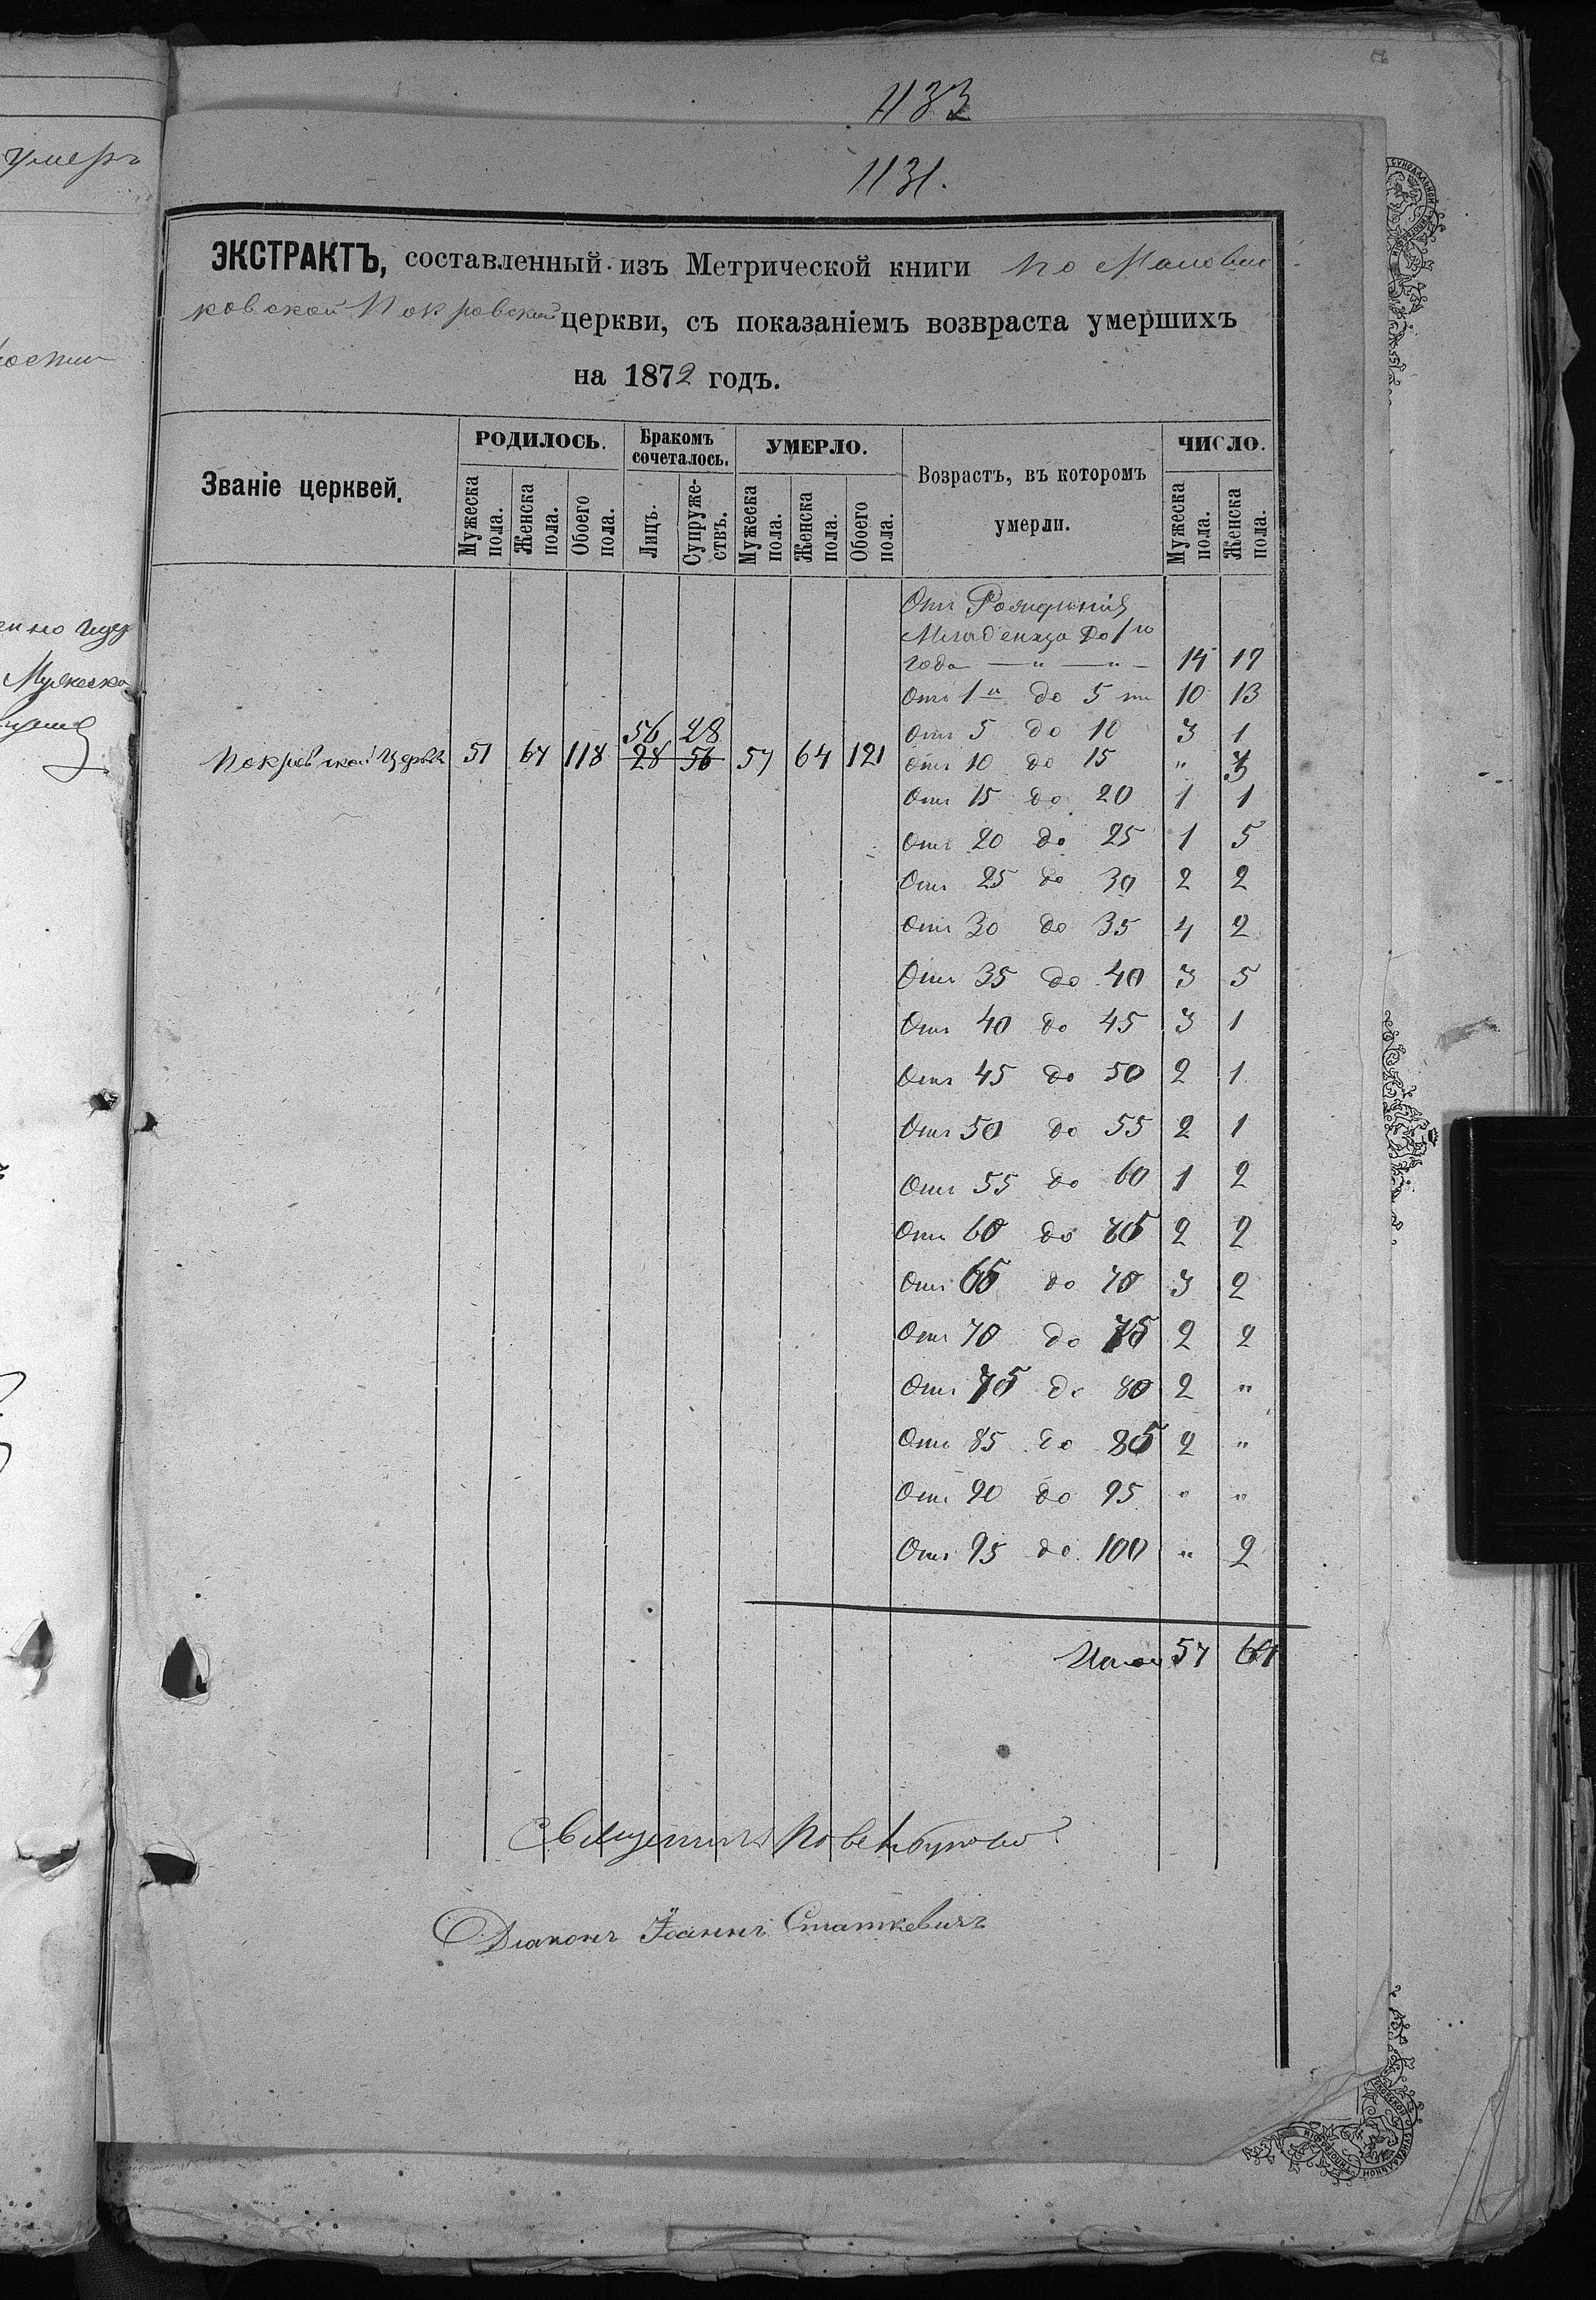 умеръ
1133
1131.
ЭКСТРАКТЪ, составленный изъ Метрической книги по
ковской Покровской церкви, съ показаніемъ возвраста умершихъ
на 1872 годъ.
Званіе церквей.
РОДИЛОСЬ.
Бракомъ сочеталось.
УМЕРЛО.
Возрастъ, въ которомъ умерли.
ЧИСЛО.
Мужеска пола.
Женска пола.
Обоего пола.
Лицъ.
Супружествъ.
Мужеска пола.
Женска пола.
Обоего пола.
Мужеска пола.
Женска пола.
Отъ Рожденія
Младенца до 1го
года — " — " — 14 19
Отъ 1 до 5 ти 10 13
56 28
Отъ 5 до 10 3 1
Покровской Церкви 51 67 118 28 56 57 64 121
Отъ 10 до 15 " 3
Отъ 15 до 20 1 1
Отъ 20 до 25 1 5
Отъ 25 до 30 2 2
Отъ 30 до 35 4 2
Отъ 35 до 40 3 5
Отъ 40 до 45 3 1
Отъ 45 до 50 2 1
Отъ 50 до 55 2 1
Отъ 55 до 60 1 2
Отъ 60 до 65 2 2
Отъ 65 до 70 3 2
Отъ 70 до 75 2 2
Отъ 75 до 80 2 "
Отъ 85 до 85 2 "
Отъ 90 до 95 " "
Отъ 95 до 100 " 2
Итого 57 64
Священникъ
Діаконъ Іоаннъ Статкевичъ
Мужеска